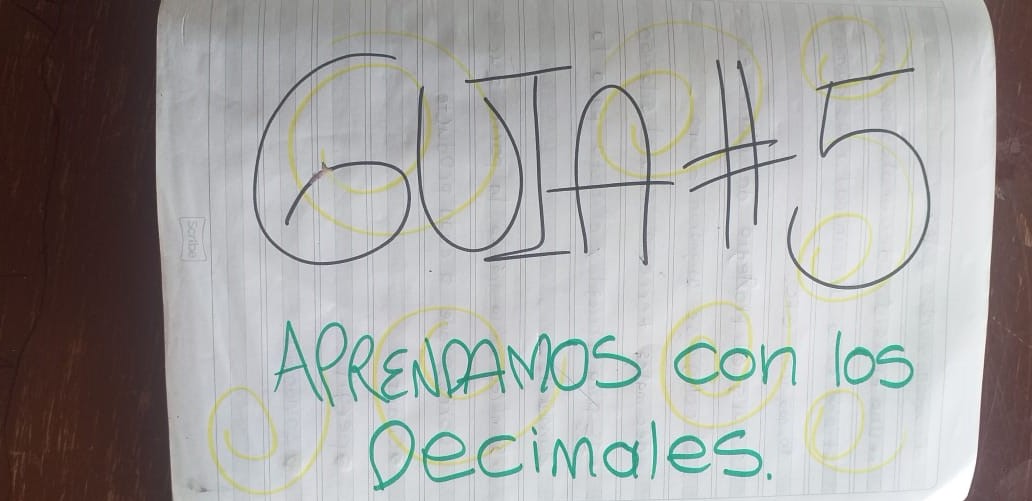 GUIA #5
APRENDAMOS con los
Decimales.
Scribe